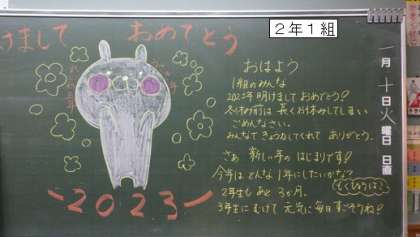 明けまして おめでとう
2年1組
おはよう
1組のみんな
2023年 明けましておめでとう!
冬休み前は 長くお休みしてしまい
ごめんなさい。
みんなで きょう力してくれて ありがとう。
さあ 新しい年の はじまりです!
今年は どんな1年にしたいかな?
もくひょうは?
2年生も あと 3か月。
3年生にむけて 元気に毎日すごそうね!
2023
一月十日火曜日 日直